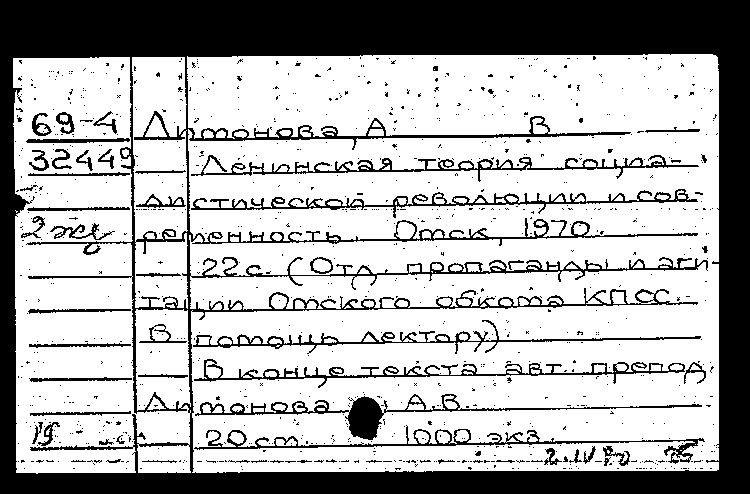 69-4 Литонова, А В
32449 Ленинская теория социа-
листической революции и сов-
2 экз ременность. Омск, 1970.
22 с. (Отд. пропаганды и аги-
тации Омского обкома КПСС.
В помощь лектору)
В конце текста авт.: препод.
Литонова А.В.
19 20 см. 1000 экз.
2.IV 70